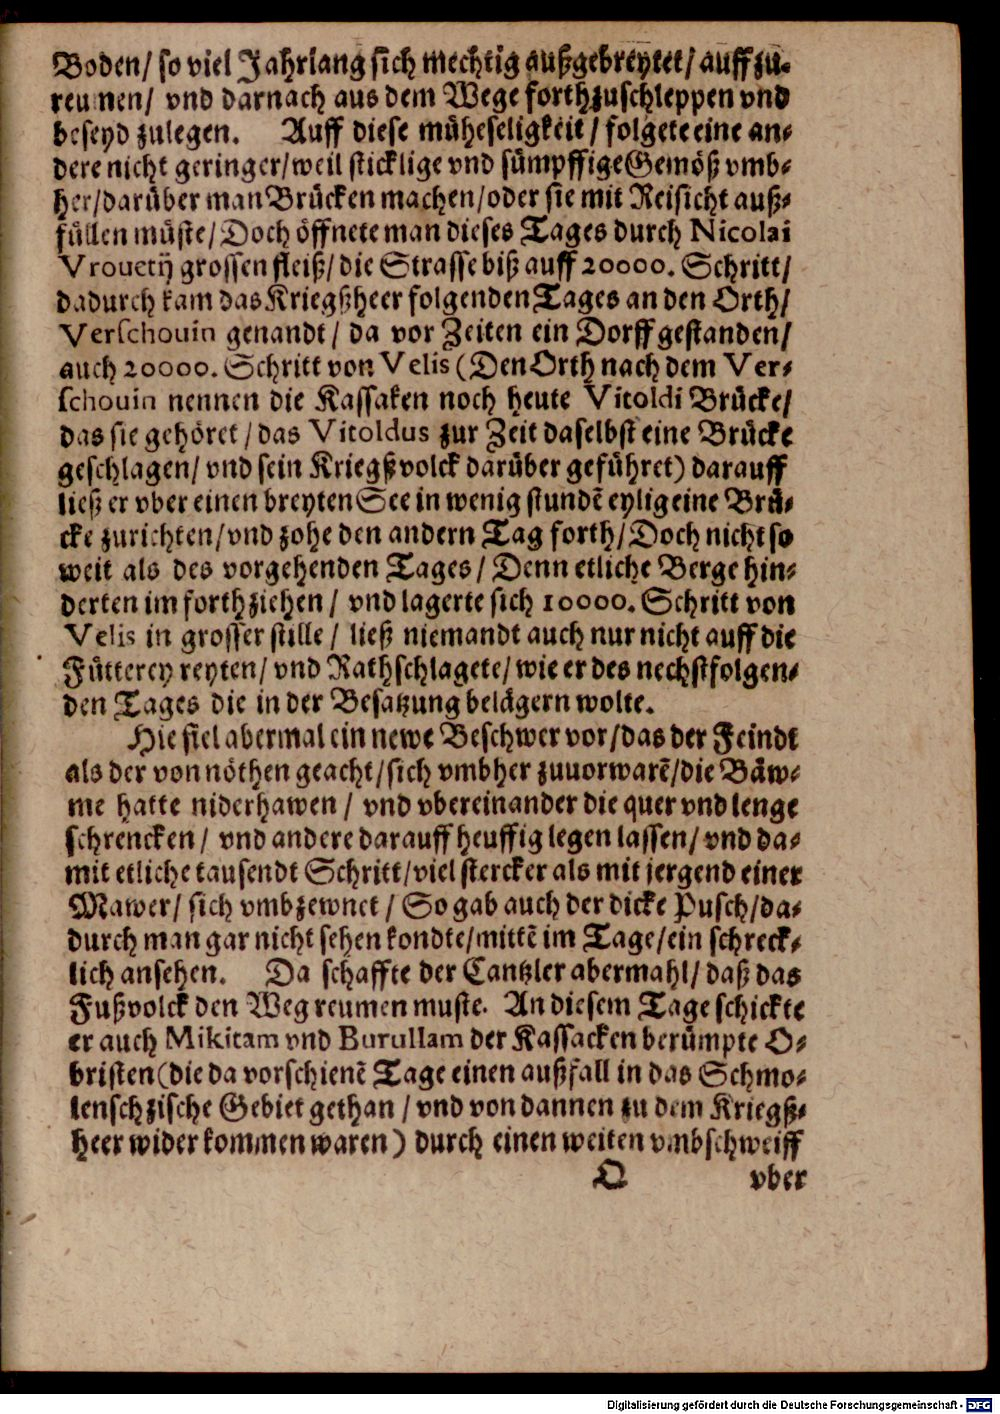 Boden/ so viel Jahrlang sich mechtig außgebreytet/ auff zu-
reumen/ vnd darnach aus dem Wege forthzuschleppen vnd
beseyd zulegen. Auff diese müheseligkeit/ folgete eine an-
dere nicht geringer/ weil sticklige vnd sümpffige Gemöß vmb-
her/ darüber man Brücken machen/ oder sie mit Reisicht auß-
füllen müste/ Doch öffnete man dieses Tages durch Nicolai
Vrouetij grossen fleiß/ die Strasse biß auff 20000. Schritt/
dadurch kam das Kriegßheer folgenden Tages an den Orth/
Verschouin genandt/ da vor Zeiten ein Dorff gestanden/
auch 20000. Schritt von Velis (Den Orth nach dem Ver-
schouin nennen die Kassaken noch heute Vitoldi Brücke/
das sie gehöret/ das Vitoldus zur Zeit daselbst eine Brücke
geschlagen/ vnd sein Kriegßvolck darüber geführet) darauff
ließ er vber einen breyten See in wenig stundẽ eylig eine Brü-
cke zurichten/ vnd zohe den andern Tag forth/ Doch nicht so
weit als des vorgehenden Tages/ Denn etliche Berge hin-
derten im forthziehen/ vnd lagerte sich 10000. Schritt von
Velis in grosser stille/ ließ niemandt auch nur nicht auff die
Fütterey reyten/ vnd Rathschlagete/ wie er des nechstfolgen-
den Tages die in der Besatzung belägern wolte.
Hie fiel abermal ein newe Beschwer vor/ das der Feindt
als der von nöthen geacht/ sich vmbher zuuorwarẽ/ die Bäw-
me hatte niderhawen/ vnd vbereinander die quer vnd lenge
schrencken/ vnd andere darauff heuffig legen lassen/ vnd da-
mit etliche tausendt Schritt/ viel stercker als mit jergend einer
Mawer/ sich vmbzewnet/ So gab auch der dicke Pusch/ da-
durch man gar nicht sehen kondte/ mittẽ im Tage/ ein schreck-
lich ansehen. Da schaffte der Cantzler abermahl/ daß das
Fußvolck den Weg reumen muste. An diesem Tage schickte
er auch Mikitam vnd Burullam der Kassacken berümpte O-
bristen (die da vorschienẽ Tage einen außfall in das Schmo-
lenschzische Gebiet gethan/ vnd von dannen zu dem Kriegß-
heer wider kommen waren) durch einen weiten vmbschweiff
O vber
Digitalisierung gefördert durch die Deutsche Forschungsgemeinschaft - DFG